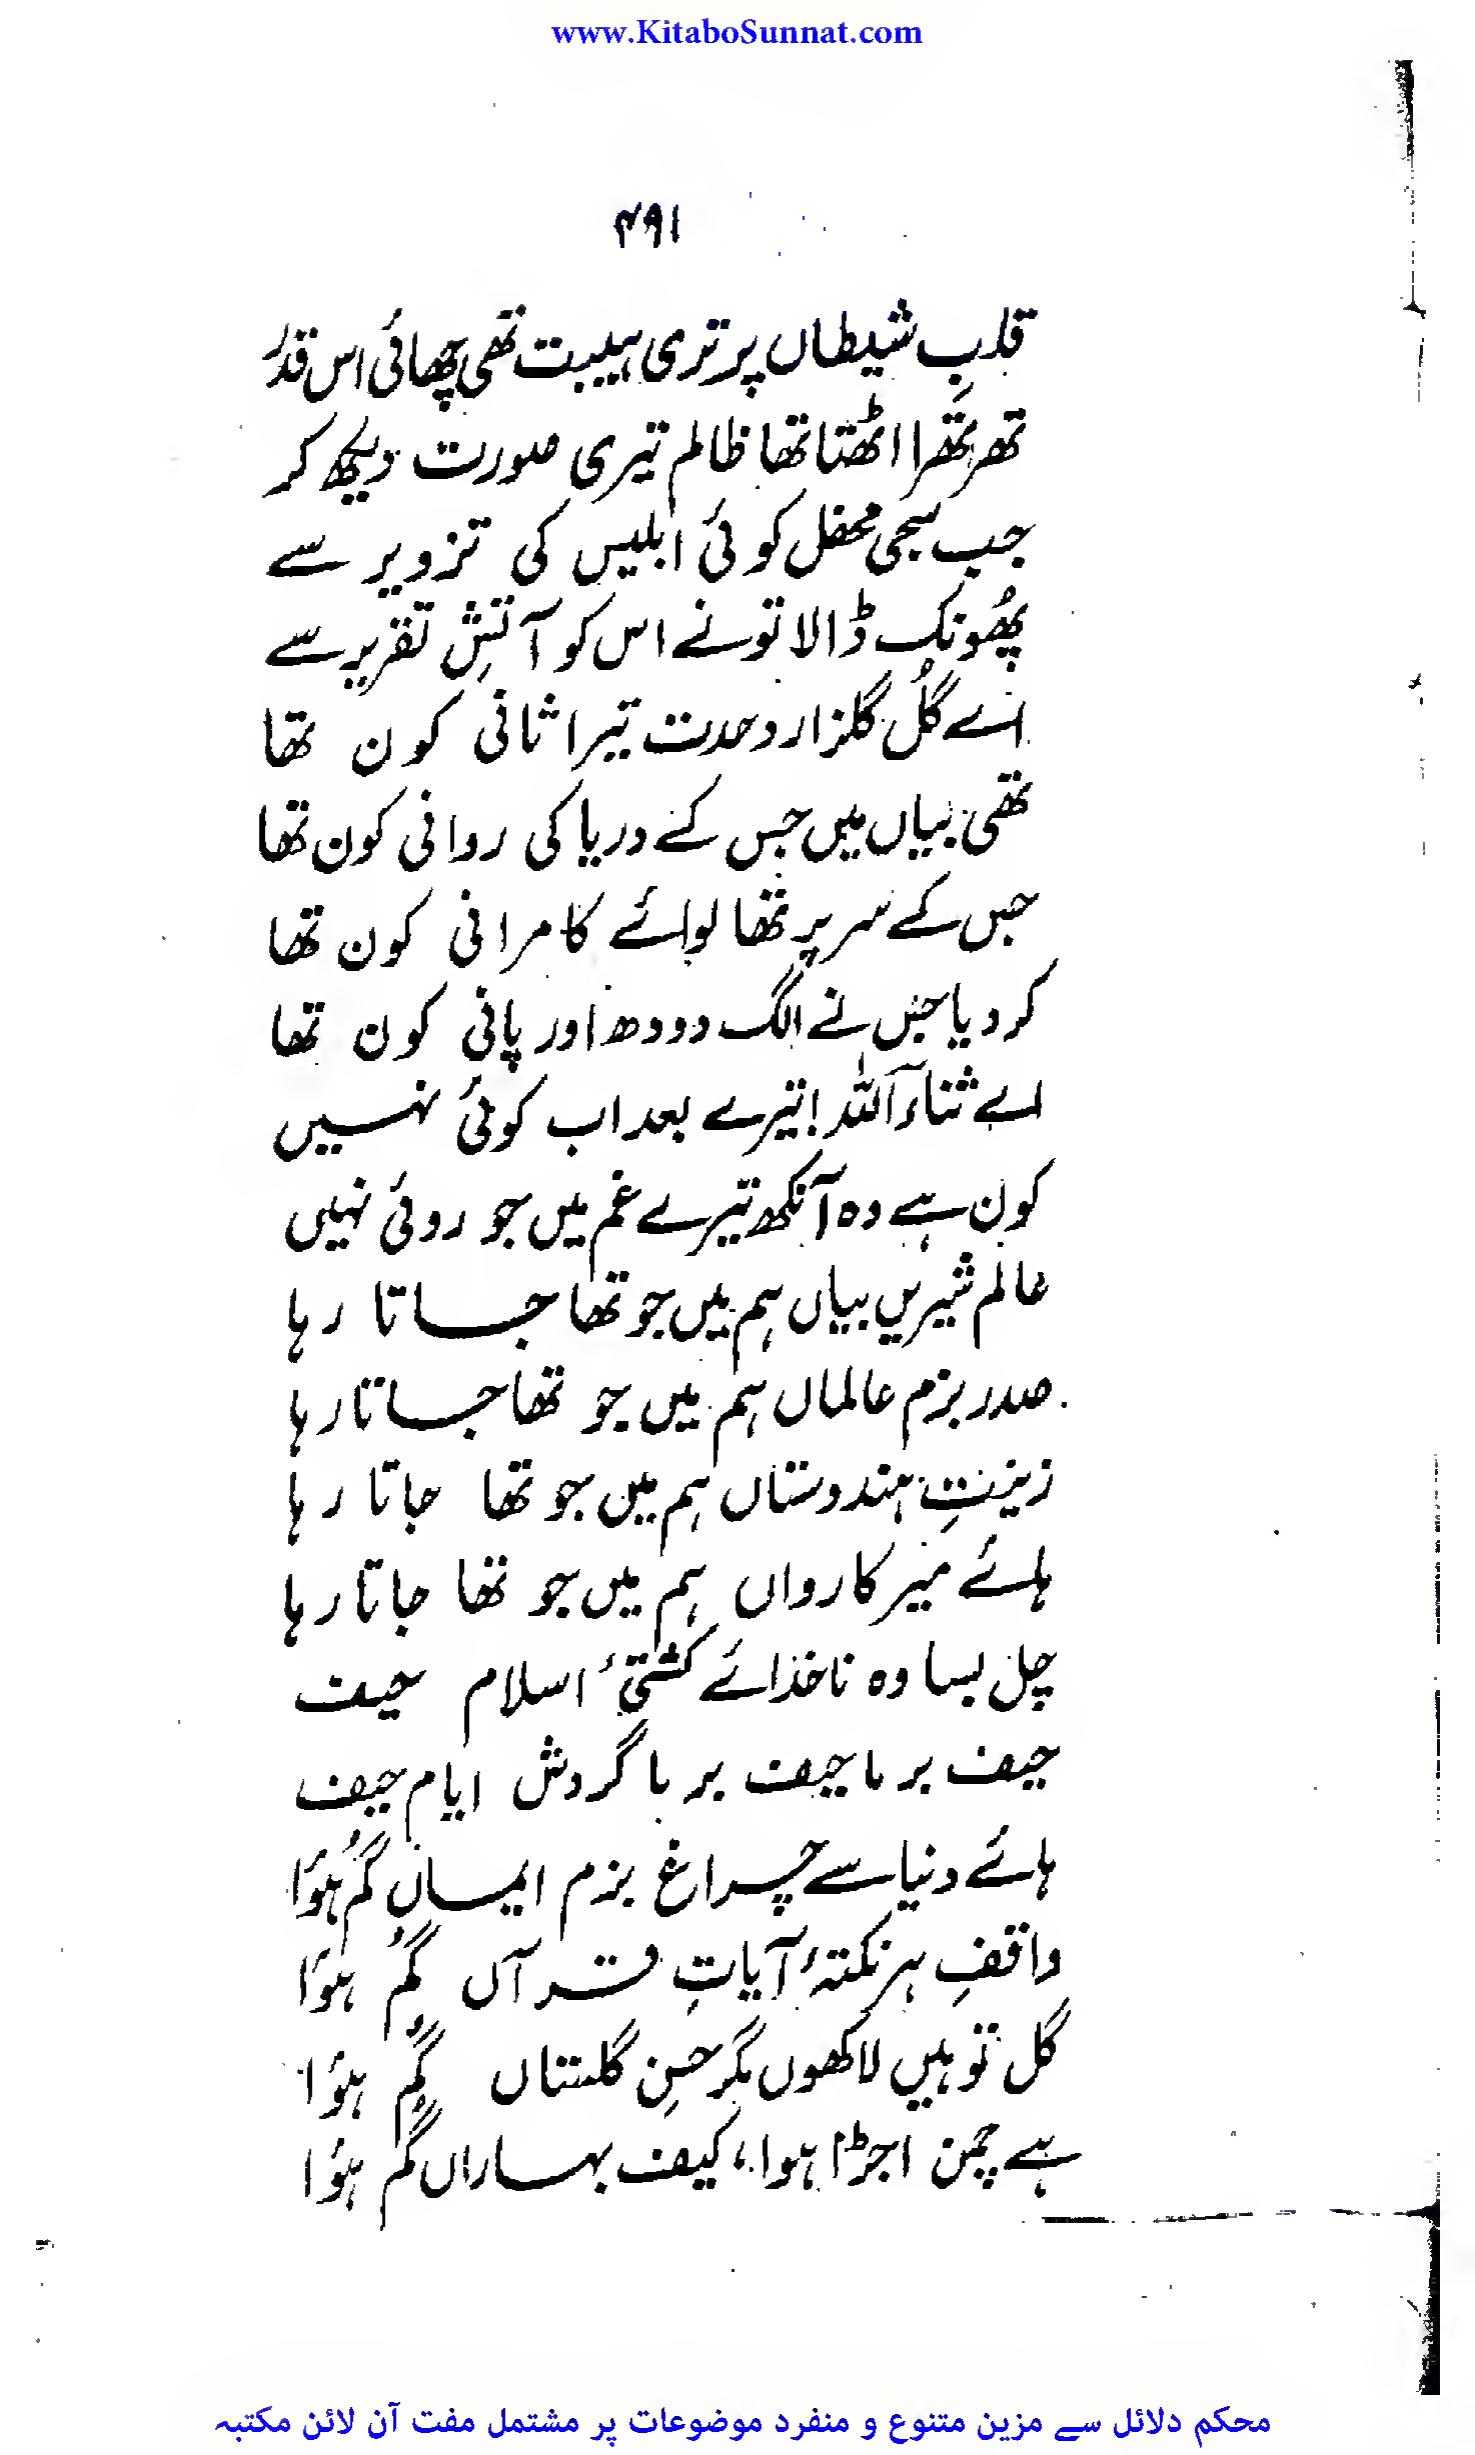 www.KitaboSunnat.com
۴۹۱
قلبِ شیطاں پر تری ہیبت تھی چھائی اس قدر
تھرتھرا اٹھتا تھا ظالم تیری صورت دیکھ کر
جب سجی محفل کوئی ابلیس کی تزویر سے
پھُونک ڈالا تو نے اس کو آتشِ تقریر سے
اے گُل گلزار وحدت تیرا ثانی کون تھا
تھی بیاں میں جس کے دریا کی روانی کون تھا
جس کے سر پر تھا لوائے کامرانی کون تھا
کر دیا جس نے الگ دودھ اور پانی کون تھا
اے ثناء اللہ! تیرے بعد اب کوئی نہیں
کون ہے وہ آنکھ تیرے غم میں جو روئی نہیں
عالم شیریں بیاں ہم میں جو تھا جاتا رہا
صدر بزم عالماں ہم میں جو تھا جاتا رہا
زینتِ ہندوستاں ہم میں جو تھا جاتا رہا
ہائے میر کارواں ہم میں جو تھا جاتا رہا
چل بسا وہ ناخدائے کشتیٔ اسلام حیف
حیف بر ما حیف بر با گردش ایام حیف
ہائے دنیا سے چراغ بزم ایماں گُم ہؤا
واقفِ ہر نکتۂ آیاتِ قرآں گُم ہؤا
گل تو ہیں لاکھوں مگر حسنِ گلستاں گُم ہؤا
ہے چمن اجڑا ہوا، کیف بہاراں گُم ہؤا
محکم دلائل سے مزین متنوع و منفرد موضوعات پر مشتمل مفت آن لائن مکتبہ